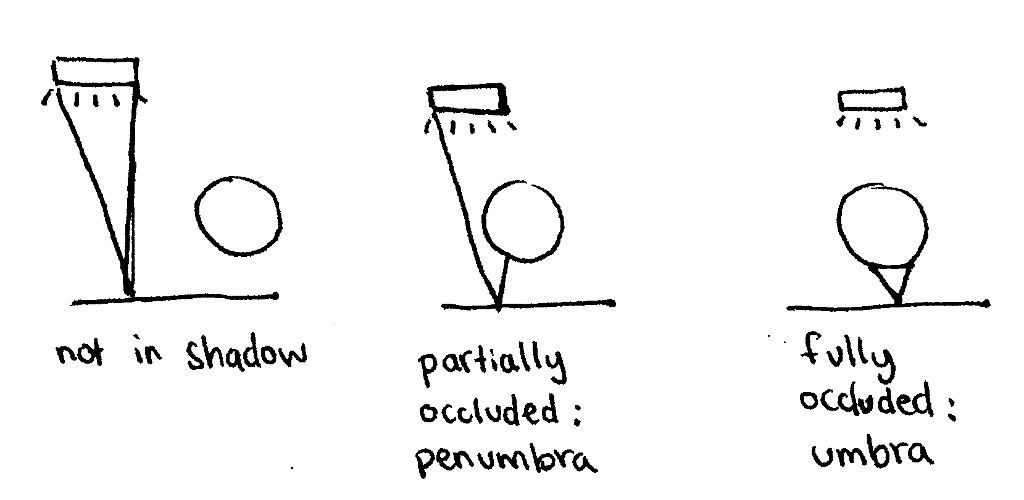 not in shadow
partially
occluded:
penumbra
fully
occluded:
umbra